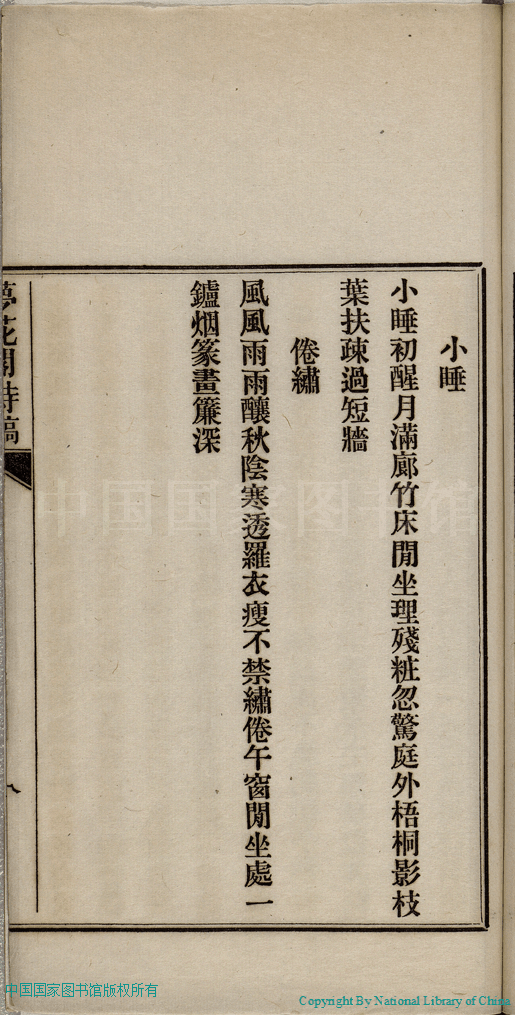 小睡
小睡初醒月滿廊竹床閒坐理殘粧忽驚庭外梧桐影枝
葉扶疎過短牆
倦繡
風風雨雨釀秋陰寒透羅衣瘦不禁繡倦午窗閒坐處一
鑪烟篆畫簾深
夢花閣詩稿
八
中国国家图书馆
中国国家图书馆版权所有
Copyright By National Library of China